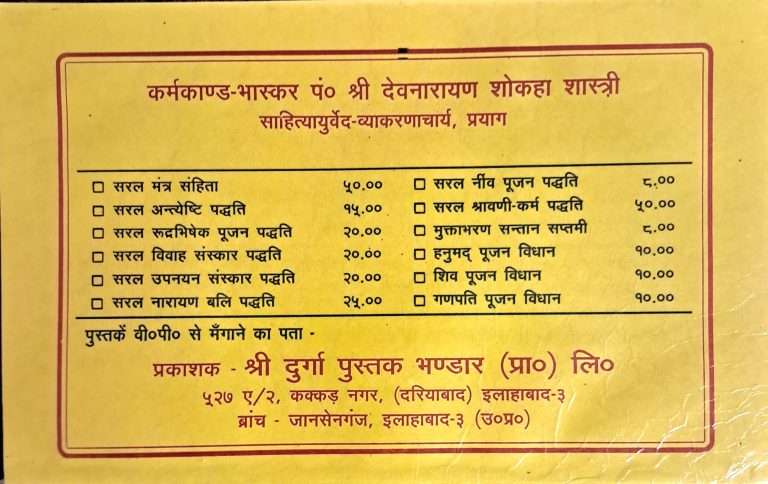 कर्मकाण्ड-भास्कर पं० श्री देवनारायण शोकहा शास्त्री
साहित्यायुर्वेद-व्याकरणाचार्य, प्रयाग
सरल मंत्र संहिता ५०.००
सरल अन्त्येष्टि पद्धति १५.००
सरल रूद्रभिषेक पूजन पद्धति २०.००
सरल विवाह संस्कार पद्धति २०.००
सरल उपनयन संस्कार पद्धति २०.००
सरल नारायण बलि पद्धति २५.००
सरल नींव पूजन पद्धति ८.००
सरल श्रावणी-कर्म पद्धति ५०.००
मुक्ताभरण सन्तान सप्तमी ८.००
हनुमद् पूजन विधान १०.००
शिव पूजन विधान १०.००
गणपति पूजन विधान १०.००
पुस्तकें वी०पी० से मँगाने का पता -
प्रकाशक - श्री दुर्गा पुस्तक भण्डार (प्रा०) लि०
५२७ ए/२, कक्कड़ नगर, (दरियाबाद) इलाहाबाद-३
ब्रांच - जानसेनगंज, इलाहाबाद-३ (उ०प्र०)